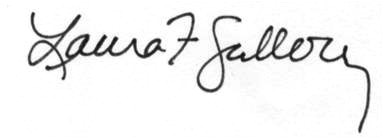 Laura F Gullory